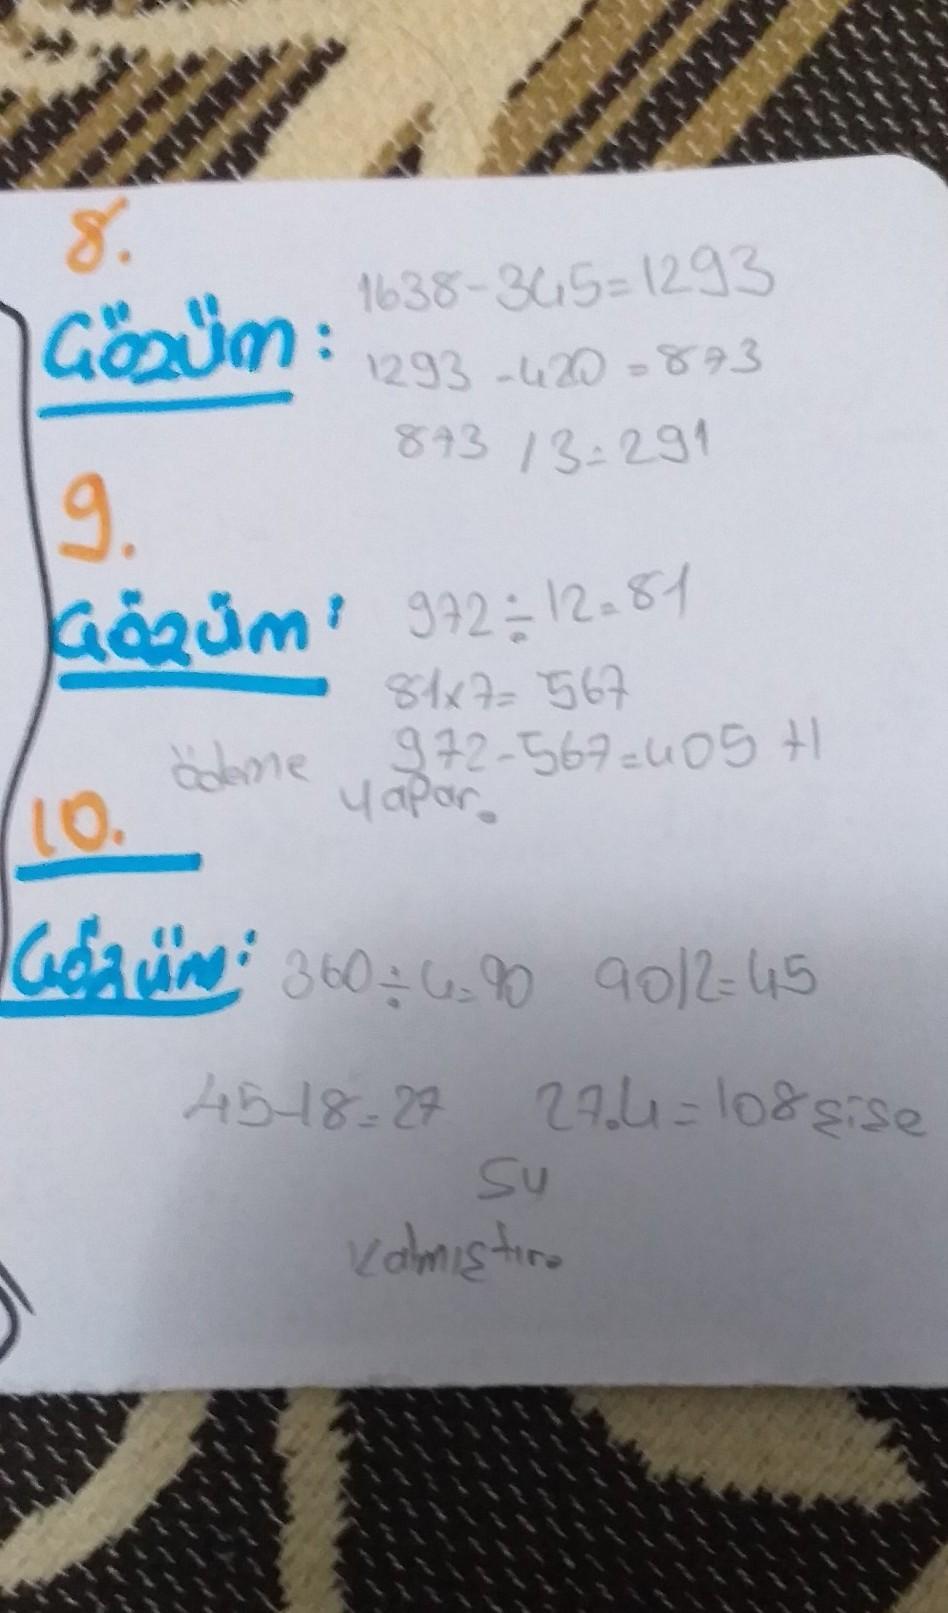 8.
Çözüm: 1638-345=1293
1293 -420 = 873
873 / 3 = 291
9.
Çözüm: 972÷12=81
81x7= 567
972-567=405 tl
ödeme yapar.
10.
Çözüm: 360÷4=90 90/2=45
45-18=27 27.4=108 şişe
su
kalmıştır.